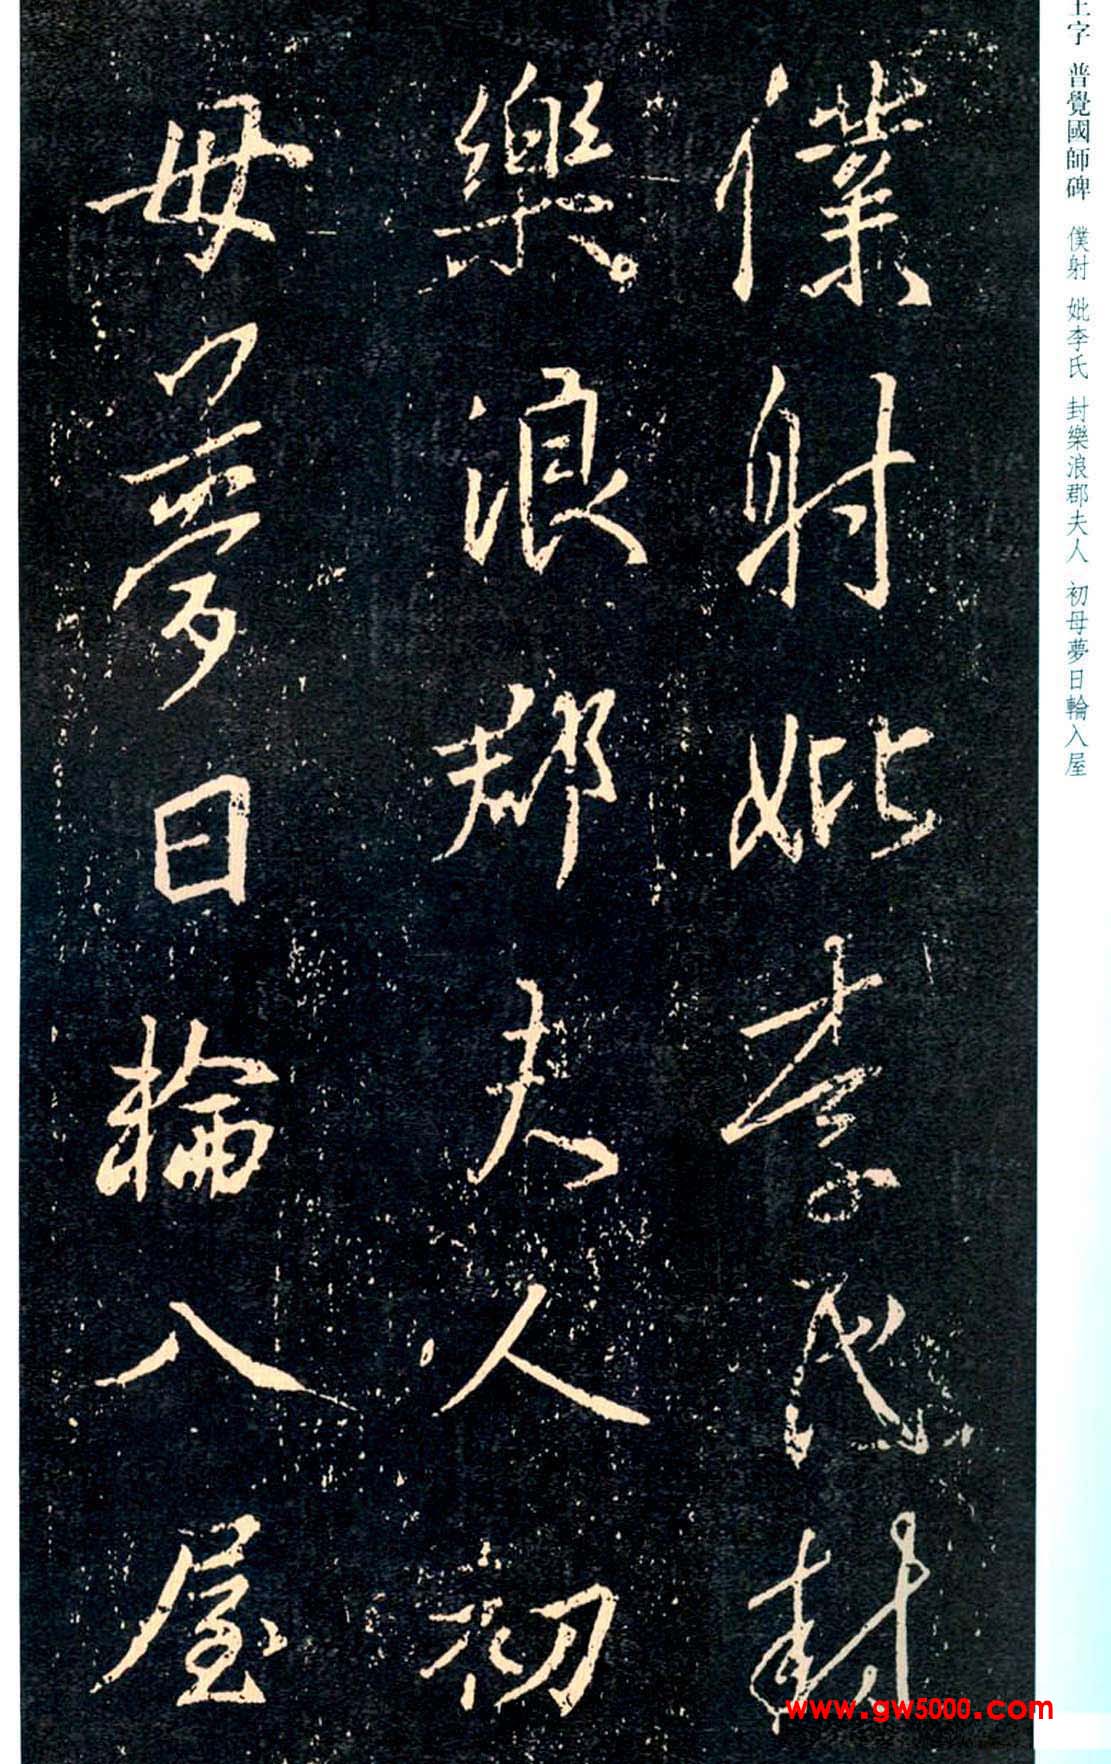 王字 普覺國師碑 僕射 妣李氏 封樂浪郡夫人 初母夢日輪入屋
僕射妣李氏封
樂浪郡夫人初
母夢日輪入屋
www.gw5000.com